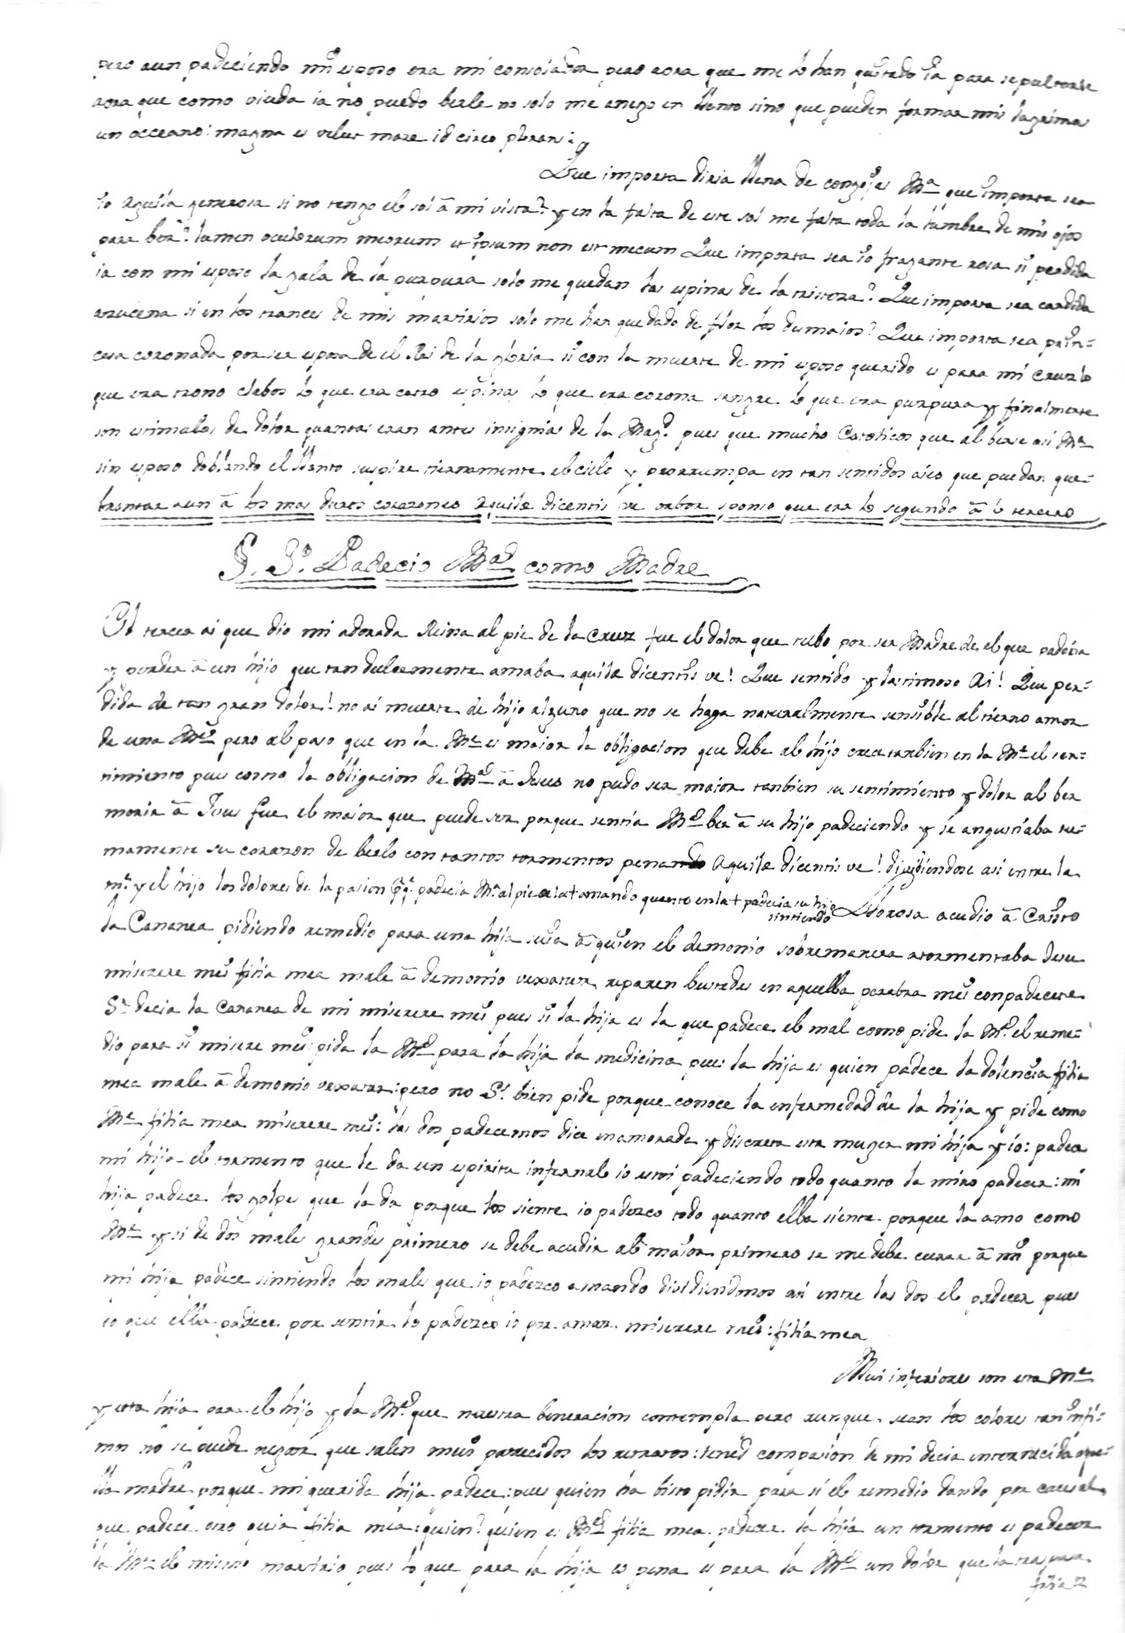 pero aun padeciendo mi esposo era mi consolador pero aora que me lo han quitado ia para sepultarse
aora que como viuda ia no puedo berle no solo me anego en llanto sino que pueden formar mis lagrimas
un occeano: magna es velut mare id circo ploran:
Que importa diria llena de congojas Ma que importa sea
io Aguila generosa si no tengo el sol â mi vista? y en la falta de este sol me falta toda la lumbre de mis ojos
para ber? lumen oculorum meorum et ipsum non est mecum Que importa sea io fragante rosa si perdida
ia con mi esposo la gala de la purpura solo me quedan las espinas de la tristeza? Que importa sea candida
azucena si en los trances de mis martirios solo me han quedado de flor los desmaios? Que importa sea prin-
cesa coronada por ser esposa de el Rei de la gloria si con la muerte de mi esposo querido es para mi Cruz lo
que era trono clabos lo que era cetro espinas lo que era corona sangre lo que era purpura y finalmente
son estimulos de dolor quantas eran antes insignias de la Mag. pues que mucho Catolicos que al berse asi Ma
sin esposo doblando el llanto suspire tiernamente el cielo y prorrumpa en tan sentidos aies que puedan que-
brantar aun â los mas duros corazones Aquilæ dicentis ve orbor sponso que era lo segundo â lo tercero
§. 3º. Padecio Mad como Madre
El tercer ai que dio mi adorada Reina al pie de la Cruz fue el dolor que tubo por ser Madre de el que padecia
y perder â un hijo que tan dulcemente amaba aquilæ dicentis ve! Que sentido y lastimoso Ai! Que per-
dida de tan gran dolor! no ai muerte de hijo alguno que no se haga naturalmente sensible al tierno amor
de una Me pero al paso que en la Me es maior la obligacion que debe al hijo crece tanbien en la Me el sen-
timiento pues como la obligacion de Ma â Jesus no pudo ser maior tanbien su sentimiento y dolor al ber
morir â Jesus fue el maior que puede ser porque sentia Me ber â su hijo padeciendo y se angustiaba su-
mamente su corazon de berlo con tantos tormentos penando Aquilæ dicentis ve! dividiendose asi entre la
me y el hijo los dolores de la pasion pq padecia Ma al pie de la + amando quanto en la + padecia su hijo
sintiendo Llorosa acudio â Cristo
la Cananea pidiendo remedio para una hija suia â quien el demonio sobremanera atormentaba
miserere mei filia mea male â demonio vexatur reparen bustedes en aquella palabra mei conpadecete
Sr decia la Cananea de mi miserere mei pues si la hija es la que padece el mal como pide la Me el reme-
dio para si miserere mei: pida la Me para la hija la medicina pues la hija es quien padece la dolencia filia
mea male â demonio vexatur: pero no Sr bien pide porque conoce la enfermedad de la hija y pide como
Me filia mea miserere mei: las dos padecemos dice enamorada y discreta esta muger mi hija y io: padece
mi hija el tormento que le da un espiritu infernal io estoi padeciendo todo quanto la miro padecer: mi
hija padece los golpes que la da porque los siente io padezco todo quanto ella siente porque la amo como
Me y si de dos males grandes primero se debe acudir al maior primero se me debe curar â mi porque
mi hija padece sintiendo los males que io padezco amando dividiendonos asi entre las dos el padecer pues
lo que ella padece por sentir lo padezco io por amar miserere mei: filia mea
Mui inferiores son esta Me
y esta hija para el hijo y la Me que nuestra beneracion contempla pero aunque sean los colores tan infi-
mos no se puede negar que salen mui parecidos los retratos: tened compasion de mi decia enternecida aque-
lla madre porque mi querida hija padece: pues quien ha bisto pidir para si el remedio dando por causal
que padece otro quia filia mea: quien? quien es Me filia mea padece la hija un tormento es padecer
la Me el mismo martirio pues lo que para la hija es pena es para la Me un dolor que la traspasa
filia